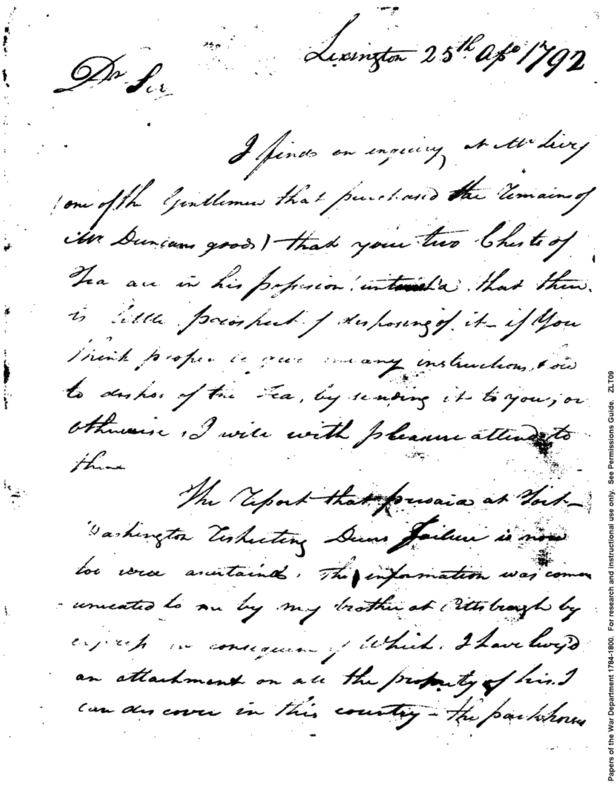 Lexington 25th Apl 1792
Dr Sir
I find on enquiry at Mr Levy
(one of the Gentlemen that purchased the remains of
Mr Duncans goods) that your two Chests of
Tea are in his possession untouch'd that there
is little prospect of disposing of it - if you
think proper to give me any instructions, how
to dispose of the Tea, by sending it to you, or
otherwise, I will with pleasure attend to
them
The report that prevaild at Fort-
Washington respecting Duers failure is now
too well ascertained. The information was comm
unicated to me by my brother at Pittsburgh by
express in consequence of which, I have levy'd
an attachment on all the property of his I
can discover in this country - the packhorses
Papers of the War Department 1784-1800. For research and instructional use only. See Permissions Guide. ZLT09